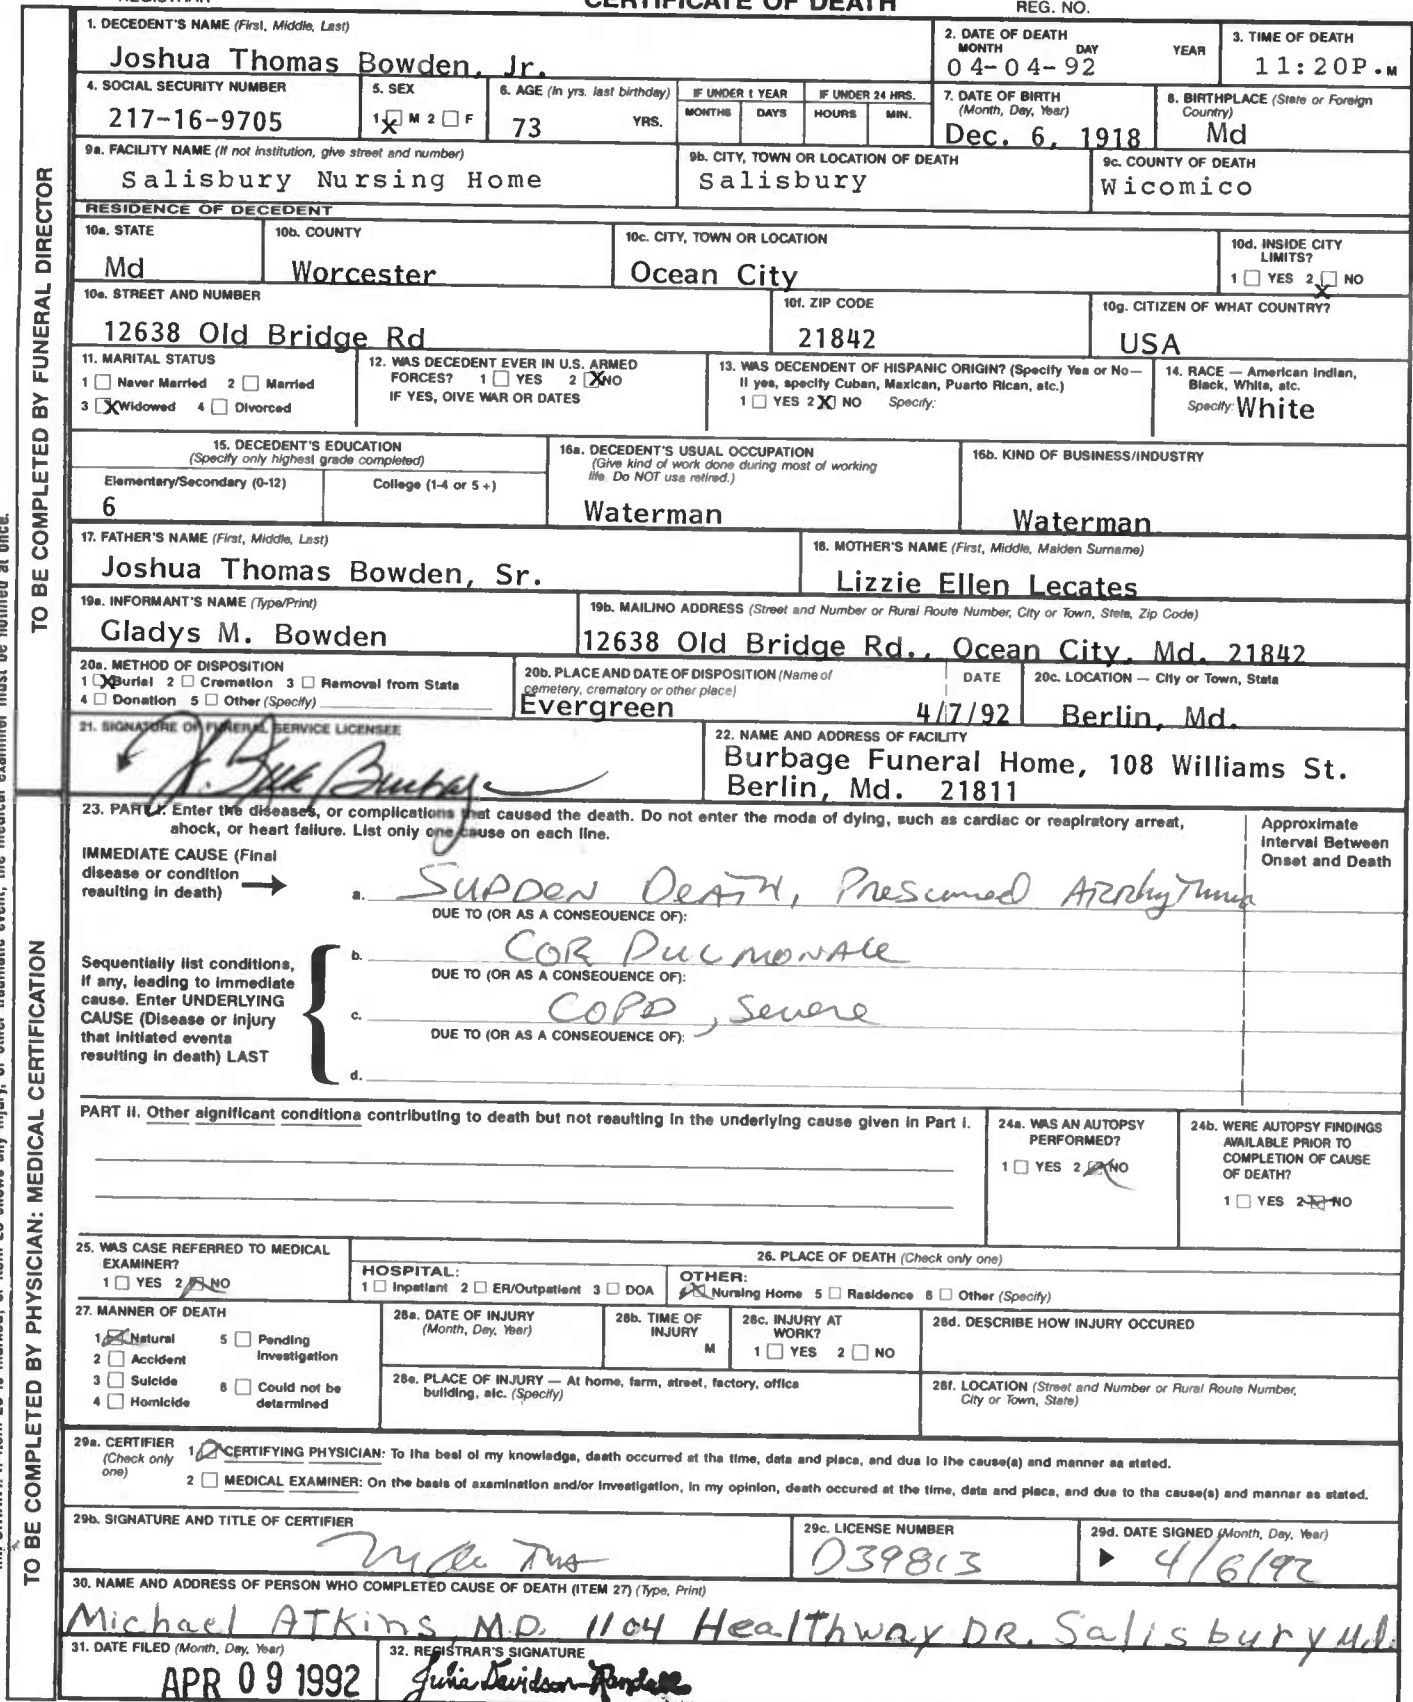 CERTIFICATE OF DEATH
REG. NO.
1. DECEDENT'S NAME (First, Middle, Last)
Joshua Thomas Bowden, Jr.
2. DATE OF DEATH
MONTH DAY YEAR
04-04-92
3. TIME OF DEATH
11:20P.M
4. SOCIAL SECURITY NUMBER
217-16-9705
5. SEX
1 X M 2 F
6. AGE (In yrs. last birthday)
73 YRS.
IF UNDER 1 YEAR
MONTHS DAYS
IF UNDER 24 HRS.
HOURS MIN.
7. DATE OF BIRTH
(Month, Day, Year)
Dec. 6, 1918
8. BIRTHPLACE (State or Foreign
Country)
Md
9a. FACILITY NAME (If not institution, give street and number)
Salisbury Nursing Home
9b. CITY, TOWN OR LOCATION OF DEATH
Salisbury
9c. COUNTY OF DEATH
Wicomico
RESIDENCE OF DECEDENT
10a. STATE
Md
10b. COUNTY
Worcester
10c. CITY, TOWN OR LOCATION
Ocean City
10d. INSIDE CITY
LIMITS?
1 YES 2 X NO
10e. STREET AND NUMBER
12638 Old Bridge Rd
10f. ZIP CODE
21842
10g. CITIZEN OF WHAT COUNTRY?
USA
11. MARITAL STATUS
1 Never Married 2 Married
3 X Widowed 4 Divorced
12. WAS DECEDENT EVER IN U.S. ARMED
FORCES? 1 YES 2 X NO
IF YES, GIVE WAR OR DATES
13. WAS DECENDENT OF HISPANIC ORIGIN? (Specify Yes or No—
If yes, specify Cuban, Mexican, Puerto Rican, etc.)
1 YES 2 X NO Specify:
14. RACE — American Indian,
Black, White, etc.
Specify: White
15. DECEDENT'S EDUCATION
(Specify only highest grade completed)
Elementary/Secondary (0-12) College (1-4 or 5 +)
6
16a. DECEDENT'S USUAL OCCUPATION
(Give kind of work done during most of working
life. Do NOT use retired.)
Waterman
16b. KIND OF BUSINESS/INDUSTRY
Waterman
17. FATHER'S NAME (First, Middle, Last)
Joshua Thomas Bowden, Sr.
18. MOTHER'S NAME (First, Middle, Maiden Surname)
Lizzie Ellen Lecates
19a. INFORMANT'S NAME (Type/Print)
Gladys M. Bowden
19b. MAILING ADDRESS (Street and Number or Rural Route Number, City or Town, State, Zip Code)
12638 Old Bridge Rd., Ocean City, Md. 21842
20a. METHOD OF DISPOSITION
1 X Burial 2 Cremation 3 Removal from State
4 Donation 5 Other (Specify)
20b. PLACE AND DATE OF DISPOSITION (Name of
cemetery, crematory or other place)
DATE
Evergreen 4/7/92
20c. LOCATION — City or Town, State
Berlin, Md.
21. SIGNATURE OF FUNERAL SERVICE LICENSEE
22. NAME AND ADDRESS OF FACILITY
Burbage Funeral Home, 108 Williams St.
Berlin, Md. 21811
23. PART I. Enter the diseases, or complications that caused the death. Do not enter the mode of dying, such as cardiac or respiratory arrest,
shock, or heart failure. List only one cause on each line.
Approximate
Interval Between
Onset and Death
IMMEDIATE CAUSE (Final
disease or condition
resulting in death)
a. Sudden Death, Presumed Arrhythmia
DUE TO (OR AS A CONSEQUENCE OF):
b. Cor Pulmonale
DUE TO (OR AS A CONSEQUENCE OF):
c. COPD, Severe
DUE TO (OR AS A CONSEQUENCE OF):
d.
Sequentially list conditions,
if any, leading to immediate
cause. Enter UNDERLYING
CAUSE (Disease or injury
that initiated events
resulting in death) LAST
PART II. Other significant conditions contributing to death but not resulting in the underlying cause given in Part I.
24a. WAS AN AUTOPSY
PERFORMED?
1 YES 2 X NO
24b. WERE AUTOPSY FINDINGS
AVAILABLE PRIOR TO
COMPLETION OF CAUSE
OF DEATH?
1 YES 2 X NO
25. WAS CASE REFERRED TO MEDICAL
EXAMINER?
1 YES 2 X NO
26. PLACE OF DEATH (Check only one)
HOSPITAL:
1 Inpatient 2 ER/Outpatient 3 DOA
OTHER:
X Nursing Home 5 Residence 6 Other (Specify)
27. MANNER OF DEATH
1 X Natural 5 Pending
Investigation
2 Accident
3 Suicide 6 Could not be
4 Homicide determined
28a. DATE OF INJURY
(Month, Day, Year)
28b. TIME OF
INJURY
M
28c. INJURY AT
WORK?
1 YES 2 NO
28d. DESCRIBE HOW INJURY OCCURED
28e. PLACE OF INJURY — At home, farm, street, factory, office
building, etc. (Specify)
28f. LOCATION (Street and Number or Rural Route Number,
City or Town, State)
29a. CERTIFIER
(Check only
one)
1 X CERTIFYING PHYSICIAN: To the best of my knowledge, death occurred at the time, date and place, and due to the cause(s) and manner as stated.
2 MEDICAL EXAMINER: On the basis of examination and/or investigation, in my opinion, death occured at the time, date and place, and due to the cause(s) and manner as stated.
29b. SIGNATURE AND TITLE OF CERTIFIER
29c. LICENSE NUMBER
D39813
29d. DATE SIGNED (Month, Day, Year)
4/6/92
30. NAME AND ADDRESS OF PERSON WHO COMPLETED CAUSE OF DEATH (ITEM 27) (Type, Print)
Michael Atkins, M.D. 1104 Healthway DR. Salisbury Md.
31. DATE FILED (Month, Day, Year)
APR 09 1992
32. REGISTRAR'S SIGNATURE
Julia Davidson-Randall
TO BE COMPLETED BY FUNERAL DIRECTOR
TO BE COMPLETED BY PHYSICIAN: MEDICAL CERTIFICATION